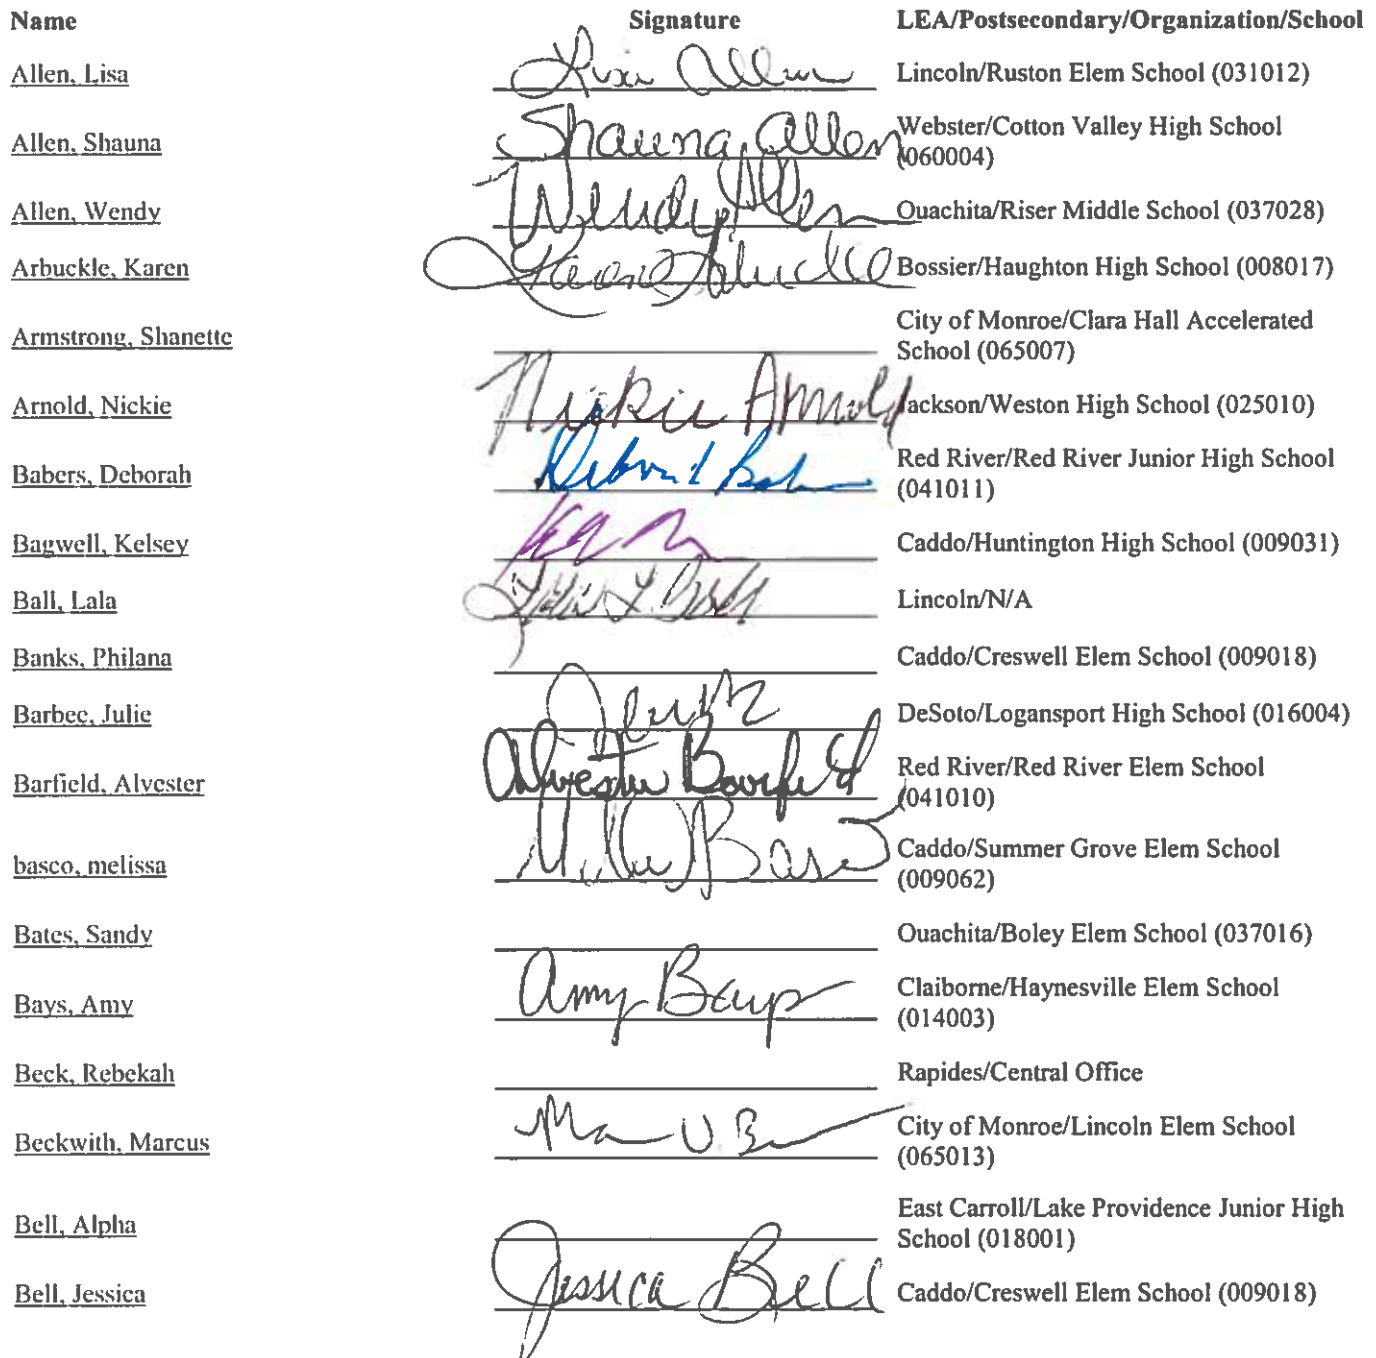 Name Signature LEA/Postsecondary/Organization/School
Allen, Lisa Lisa Allen Lincoln/Ruston Elem School (031012)
Allen, Shauna Shauna Allen Webster/Cotton Valley High School
(060004)
Allen, Wendy Wendy Allen Ouachita/Riser Middle School (037028)
Arbuckle, Karen Karen Arbuckle Bossier/Haughton High School (008017)
Armstrong, Shanette City of Monroe/Clara Hall Accelerated
School (065007)
Arnold, Nickie Nickie Arnold Jackson/Weston High School (025010)
Babers, Deborah Red River/Red River Junior High School
(041011)
Bagwell, Kelsey Caddo/Huntington High School (009031)
Ball, Lala Lincoln/N/A
Banks, Philana Caddo/Creswell Elem School (009018)
Barbee, Julie DeSoto/Logansport High School (016004)
Barfield, Alvester Alvester Barfield Red River/Red River Elem School
(041010)
basco, melissa Caddo/Summer Grove Elem School
(009062)
Bates, Sandy Ouachita/Boley Elem School (037016)
Bays, Amy Amy Bays Claiborne/Haynesville Elem School
(014003)
Beck, Rebekah Rapides/Central Office
Beckwith, Marcus City of Monroe/Lincoln Elem School
(065013)
Bell, Alpha East Carroll/Lake Providence Junior High
School (018001)
Bell, Jessica Jessica Bell Caddo/Creswell Elem School (009018)